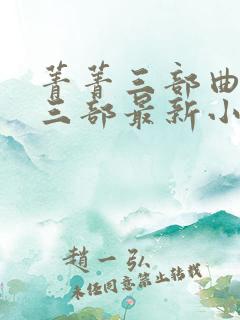 菁菁三部曲
三部最新小
趙一弘
未经同意禁止转载